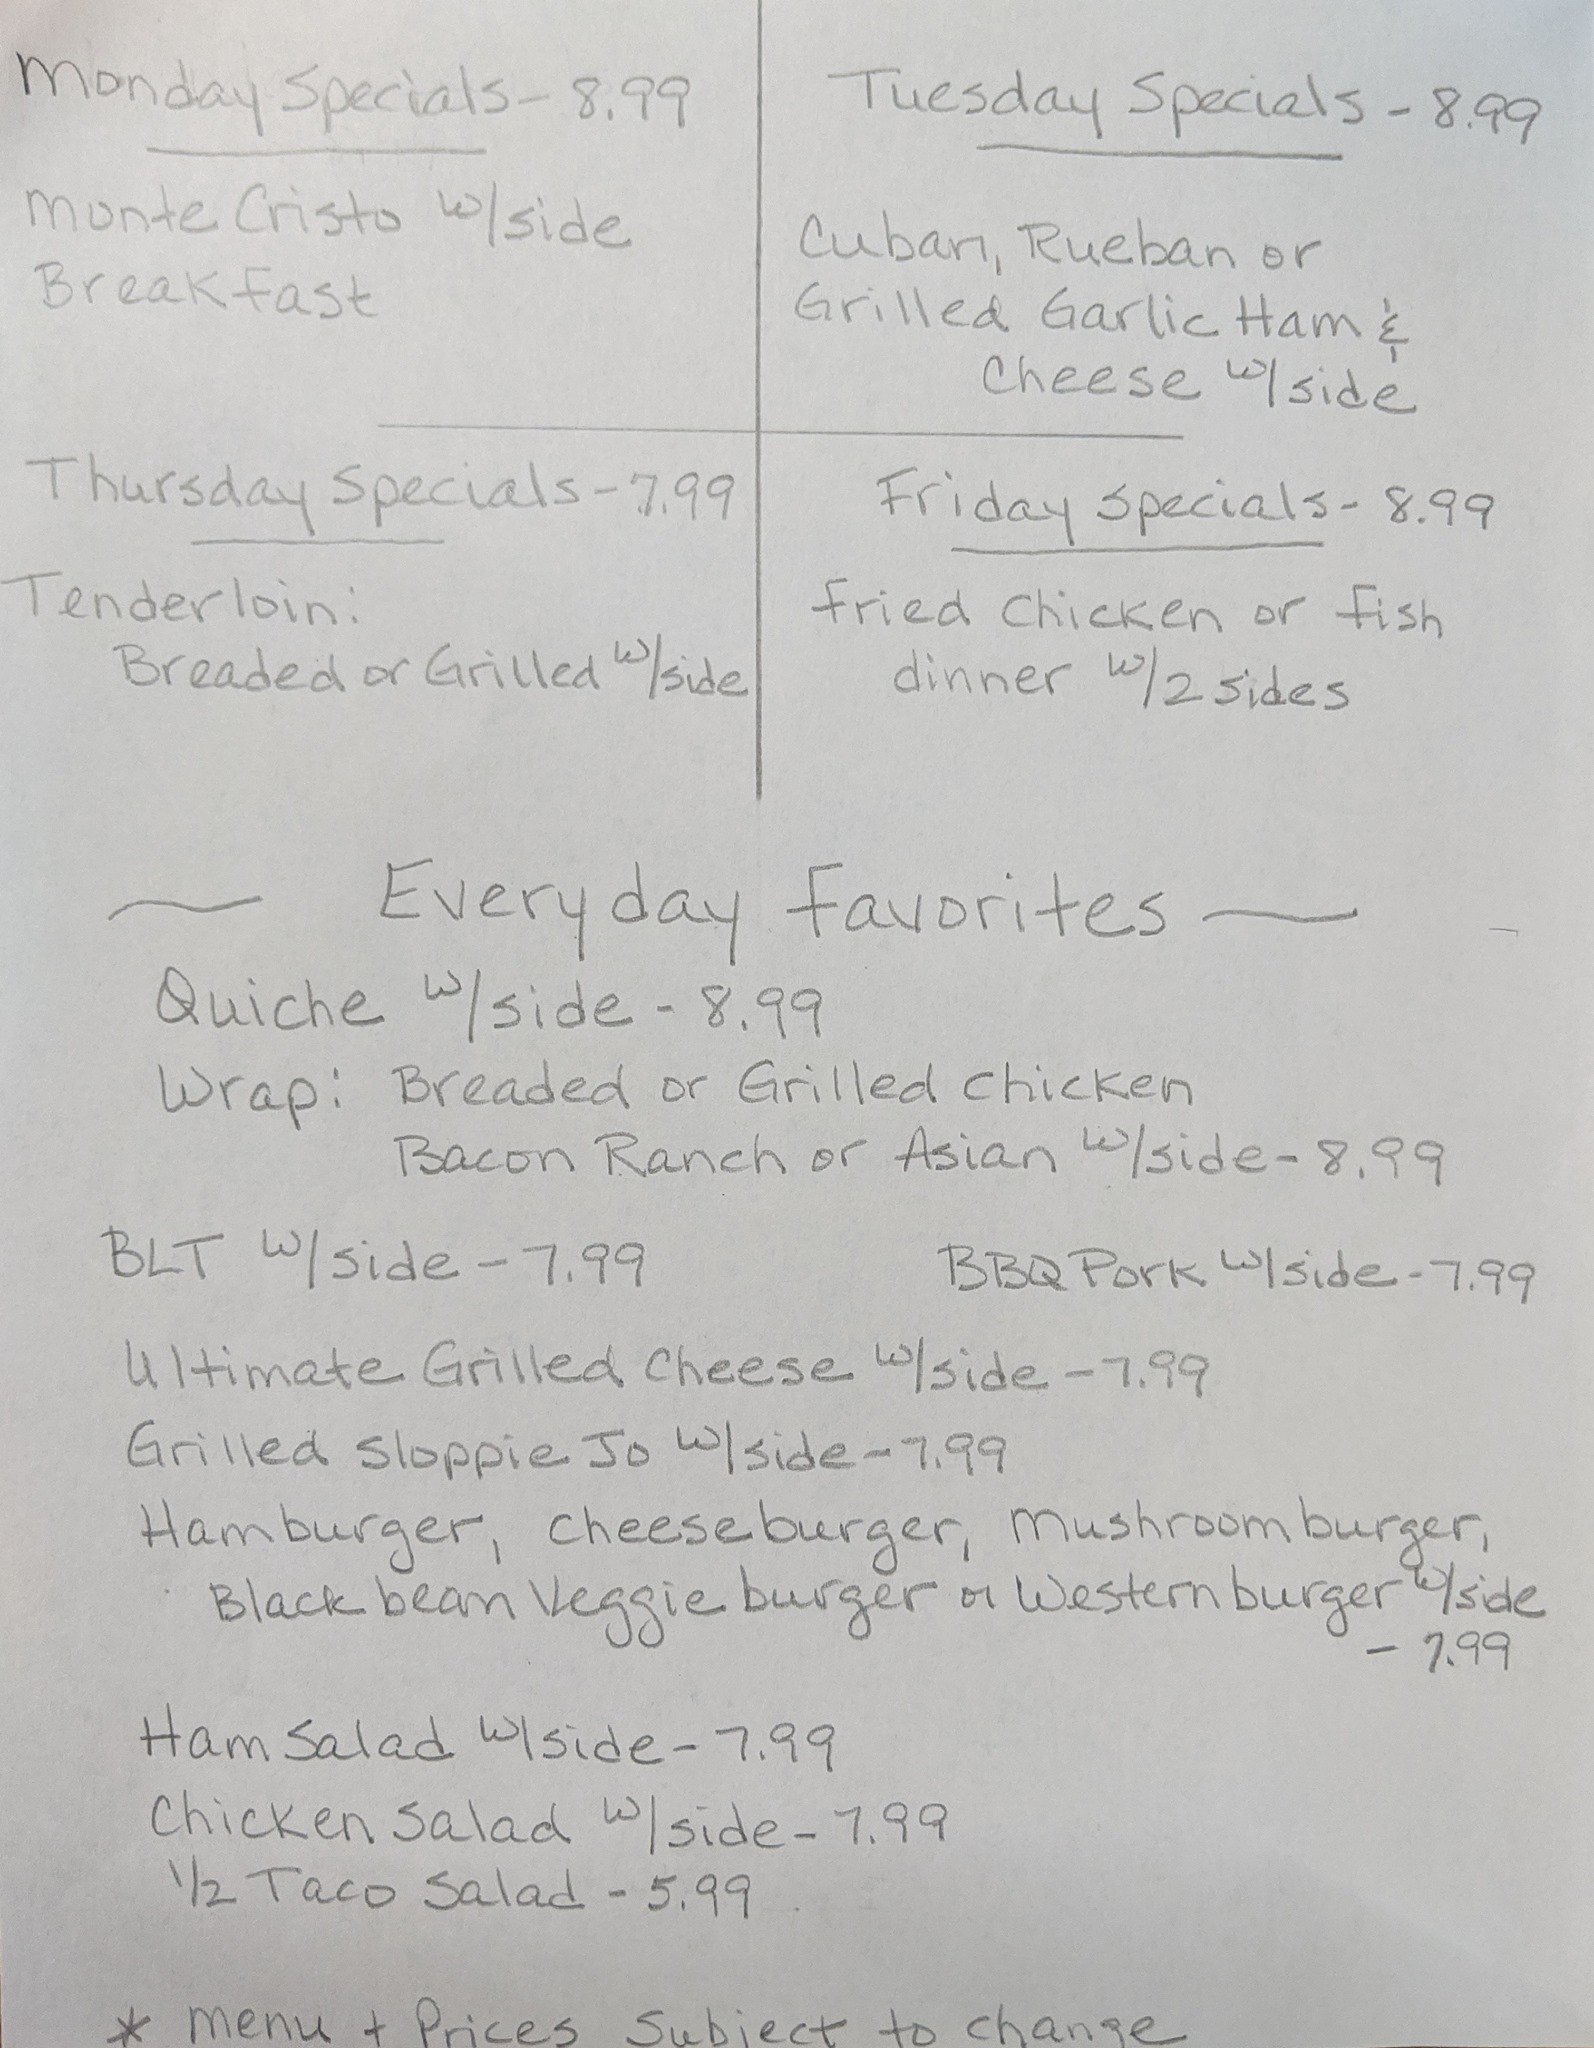 Monday Specials - 8.99
Monte Cristo w/side
Breakfast
Tuesday Specials - 8.99
Cuban, Rueban or
Grilled Garlic Ham &
Cheese w/side
Thursday Specials - 7.99
Tenderloin:
Breaded or Grilled w/side
Friday Specials - 8.99
Fried Chicken or Fish
dinner w/2 sides
Everyday Favorites
Quiche w/side - 8.99
Wrap: Breaded or Grilled Chicken
Bacon Ranch or Asian w/side - 8.99
BLT w/side - 7.99
BBQ Pork w/side - 7.99
Ultimate Grilled Cheese w/side - 7.99
Grilled Sloppie Jo w/side - 7.99
Hamburger, Cheeseburger, Mushroom burger,
Black bean Veggie burger or Western burger w/side
- 7.99
Ham Salad w/side - 7.99
Chicken Salad w/side - 7.99
1/2 Taco Salad - 5.99
* Menu + Prices Subject to change